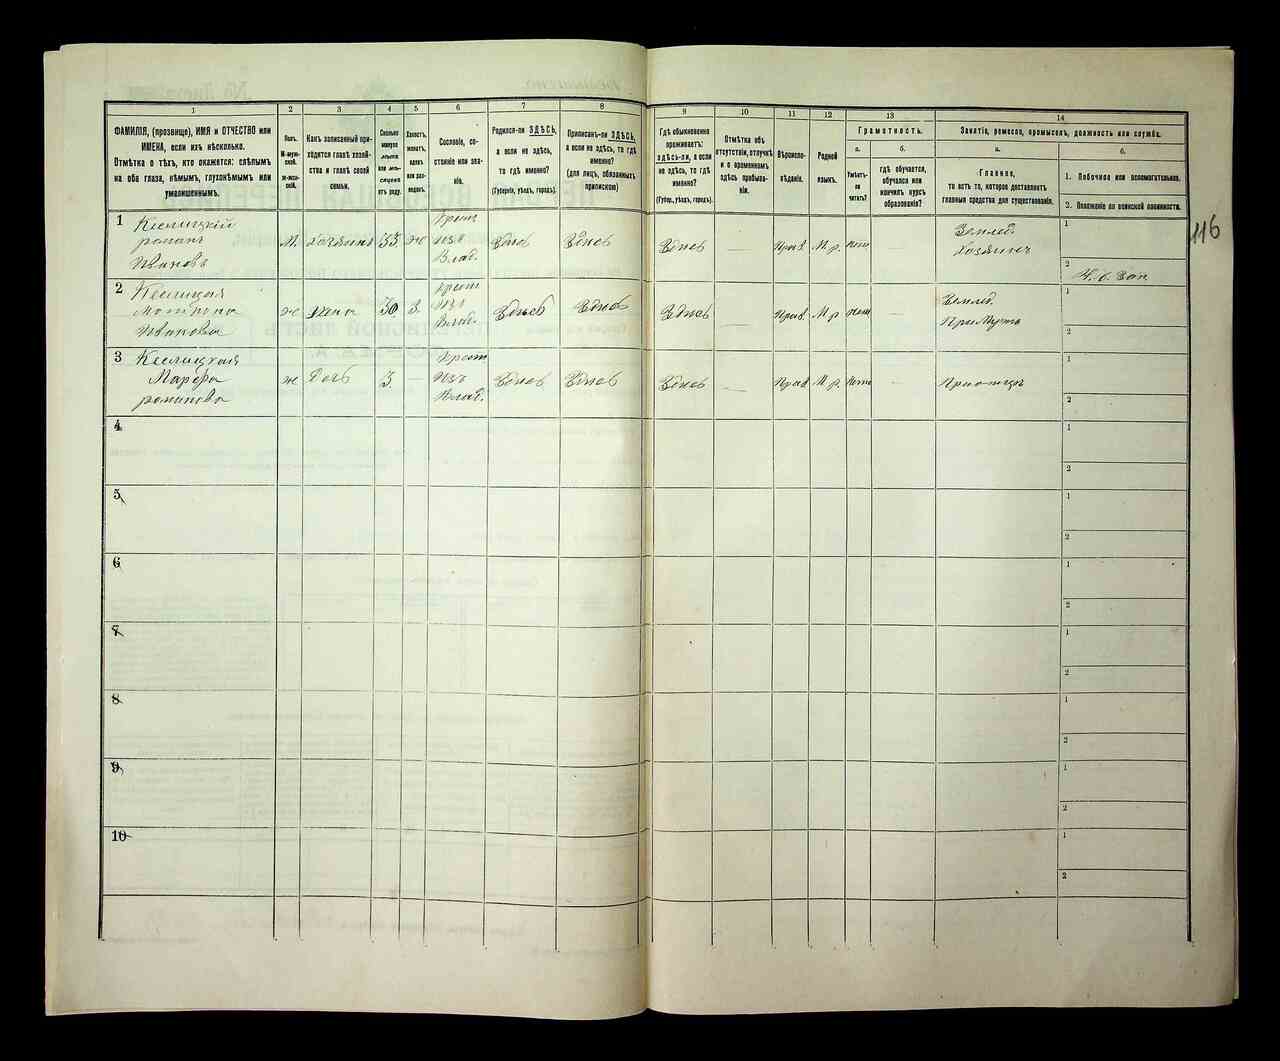 1
ФАМИЛІЯ, (прозвище), ИМЯ и ОТЧЕСТВО или
ИМЕНА, если ихъ нѣсколько.
Отмѣтка о тѣхъ, кто окажется: слѣпымъ
на оба глаза, нѣмымъ, глухонѣмымъ или
умалишеннымъ.
2
Полъ.
М-муж-
ской.
ж-жен-
скій.
3
Какъ записанный при-
ходится главѣ хозяй-
ства и главѣ своей
семьи.
4
Сколько
минуло
лѣтъ
или мѣ-
сяцевъ
отъ роду.
5
Холостъ,
женатъ,
вдовъ
или раз-
веденъ.
6
Сословіе, со-
стояніе или зва-
ніе.
7
Родился-ли ЗДѢСЬ,
а если не здѣсь,
то гдѣ именно?
(Губернія, уѣздъ, городъ).
8
Приписанъ-ли ЗДѢСЬ,
а если не здѣсь, то гдѣ
именно?
(для лицъ, обязанныхъ
припискою)
9
Гдѣ обыкновенно
проживаетъ:
здѣсь-ли, а если
не здѣсь, то гдѣ
именно?
(Губер., уѣздъ, городъ).
10
Отмѣтка объ
отсутствіи, отлучкѣ
и о временномъ
здѣсь пребыва-
ніи.
11
Вѣроиспо-
вѣданіе.
12
Родной
языкъ.
13
Грамотность.
а.
Умѣетъ-
ли
читать?
б.
гдѣ обучается,
обучался или
кончилъ курсъ
образованія?
14
Занятіе, ремесло, промыселъ, должность или служба.
а.
Главное,
то есть то, которое доставляетъ
главныя средства для существованія.
б.
1. Побочное или вспомогательное.
2. Положеніе по воинской повинности.
116
1
Кеслицкій
романъ
Ивановъ
М.
хозяинъ
53
ж
Крест
изъ
Влад.
Здѣсь
Здѣсь
Здѣсь
—
Прав.
М. р.
нет
—
Землед.
Хозяинъ
1
2
2
Кеслицкая
Матрона
Ивановна
ж
жена
30
З.
Крест
изъ
Влад.
Здѣсь
Здѣсь
Здѣсь
—
Прав.
М. р
нет
—
Землед.
При Мужѣ
1
2
3
Кеслицкая
Марфа
романова
ж
Дочь
3
—
Крест
изъ
Влад.
Здѣсь
Здѣсь
Здѣсь
—
Прав.
М. р.
нет
—
При отцѣ
1
2
4
1
2
5
1
2
6
1
2
7
1
2
8
1
2
9
1
2
10
1
2